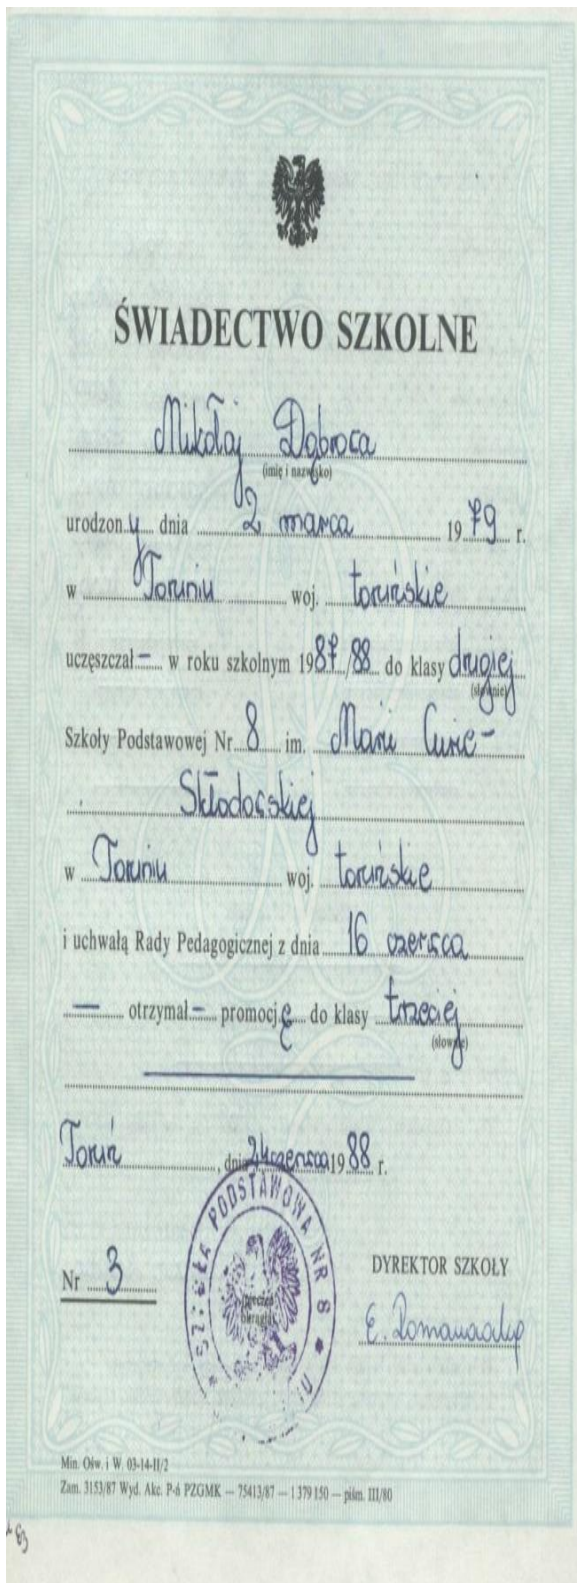 ŚWIADECTWO SZKOLNE
Mikołaj Dąbrowa
(imię i nazwisko)
urodzony dnia 2 marca 1979 r.
w Toruniu woj. toruńskie
uczęszczał – w roku szkolnym 1987/88 do klasy drugiej
(słownie)
Szkoły Podstawowej Nr 8 im. Marii Curie-
Skłodowskiej
w Toruniu woj. toruńskie
i uchwałą Rady Pedagogicznej z dnia 16 czerwca
– otrzymał – promocję do klasy trzeciej
(słownie)
Toruń, dnia 24 czerwca 1988 r.
SZKOŁA PODSTAWOWA NR 8
(pieczęć
okrągła)
Nr 3
DYREKTOR SZKOŁY
Min. Ośw. i W. 03-14-II/2
Zam. 3153/87 Wyd. Akc. P-ń PZGMK — 75413/87 — 1 379 150 — piśm. III/80